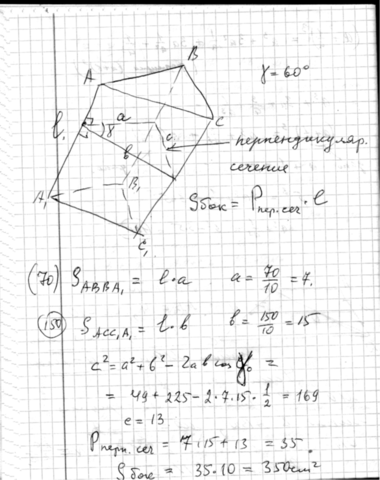 B
A
γ = 60°
C
a
l
γ
c
b
перпендикуляр.
сечение
B₁
A₁
Sбок = Pпер.сеч · l
C₁
(70) S_ABBA₁ = l·a a = 70/10 = 7.
(150) S_ACC₁A₁ = l·b b = 150/10 = 15
c² = a² + b² - 2ab cos γ =
= 49 + 225 - 2·7·15·1/2 = 169
c = 13
Pперп.сеч = 7+15+13 = 35.
Sбок = 35·10 = 350 см²